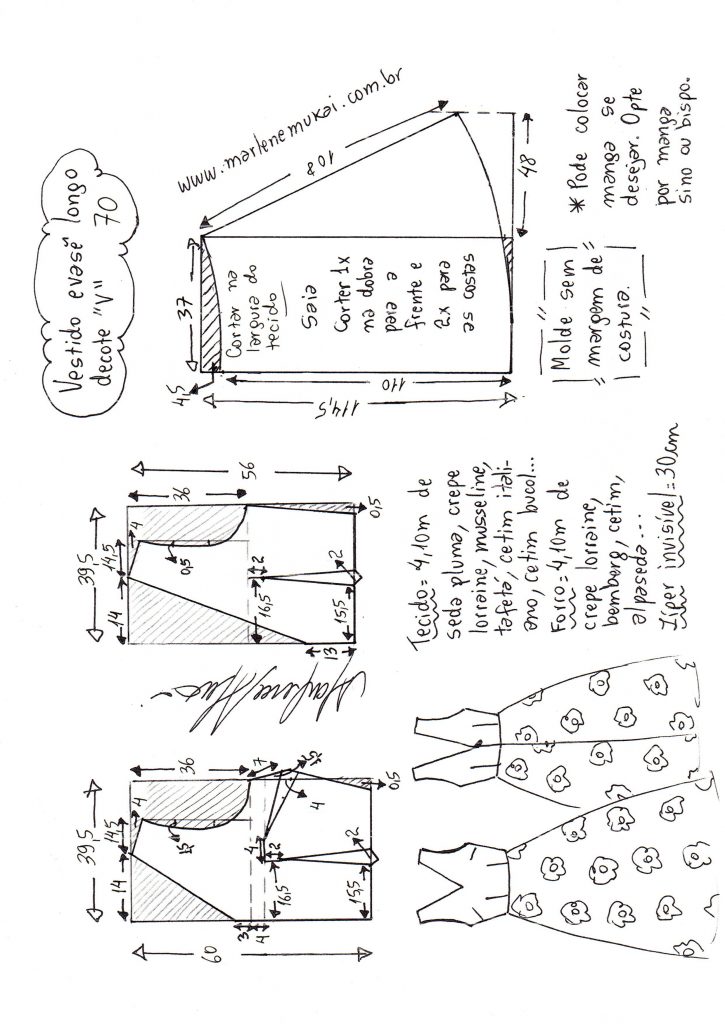 Vestido evasê longo
decote "V" 70
www.marlenemukai.com.br
37
4,5
114,5
110
108
48
Cortar na
largura do
tecido
Saia
Cortar 1x
na dobra
para a
frente e
2x para
as costas
* Pode colocar
manga se
desejar. Opte
por manga
sino ou bispo.
Molde sem
margem de
costura.
39,5
14
14,5
4
36
56
0,5
2
16,5
15,5
2
13
0,5
Marlene Mukai
39,5
14
14,5
4
36
60
7
4
4
2
16,5
15,5
2
3
4
0,5
Tecido = 4,10m de
seda pluma, crepe
lorraine, musseline,
tafetá, cetim itali-
ano, cetim bucol...
Forro = 4,10m de
crepe lorraine,
bemberg, cetim,
alpaseda...
Zíper invisível = 30cm